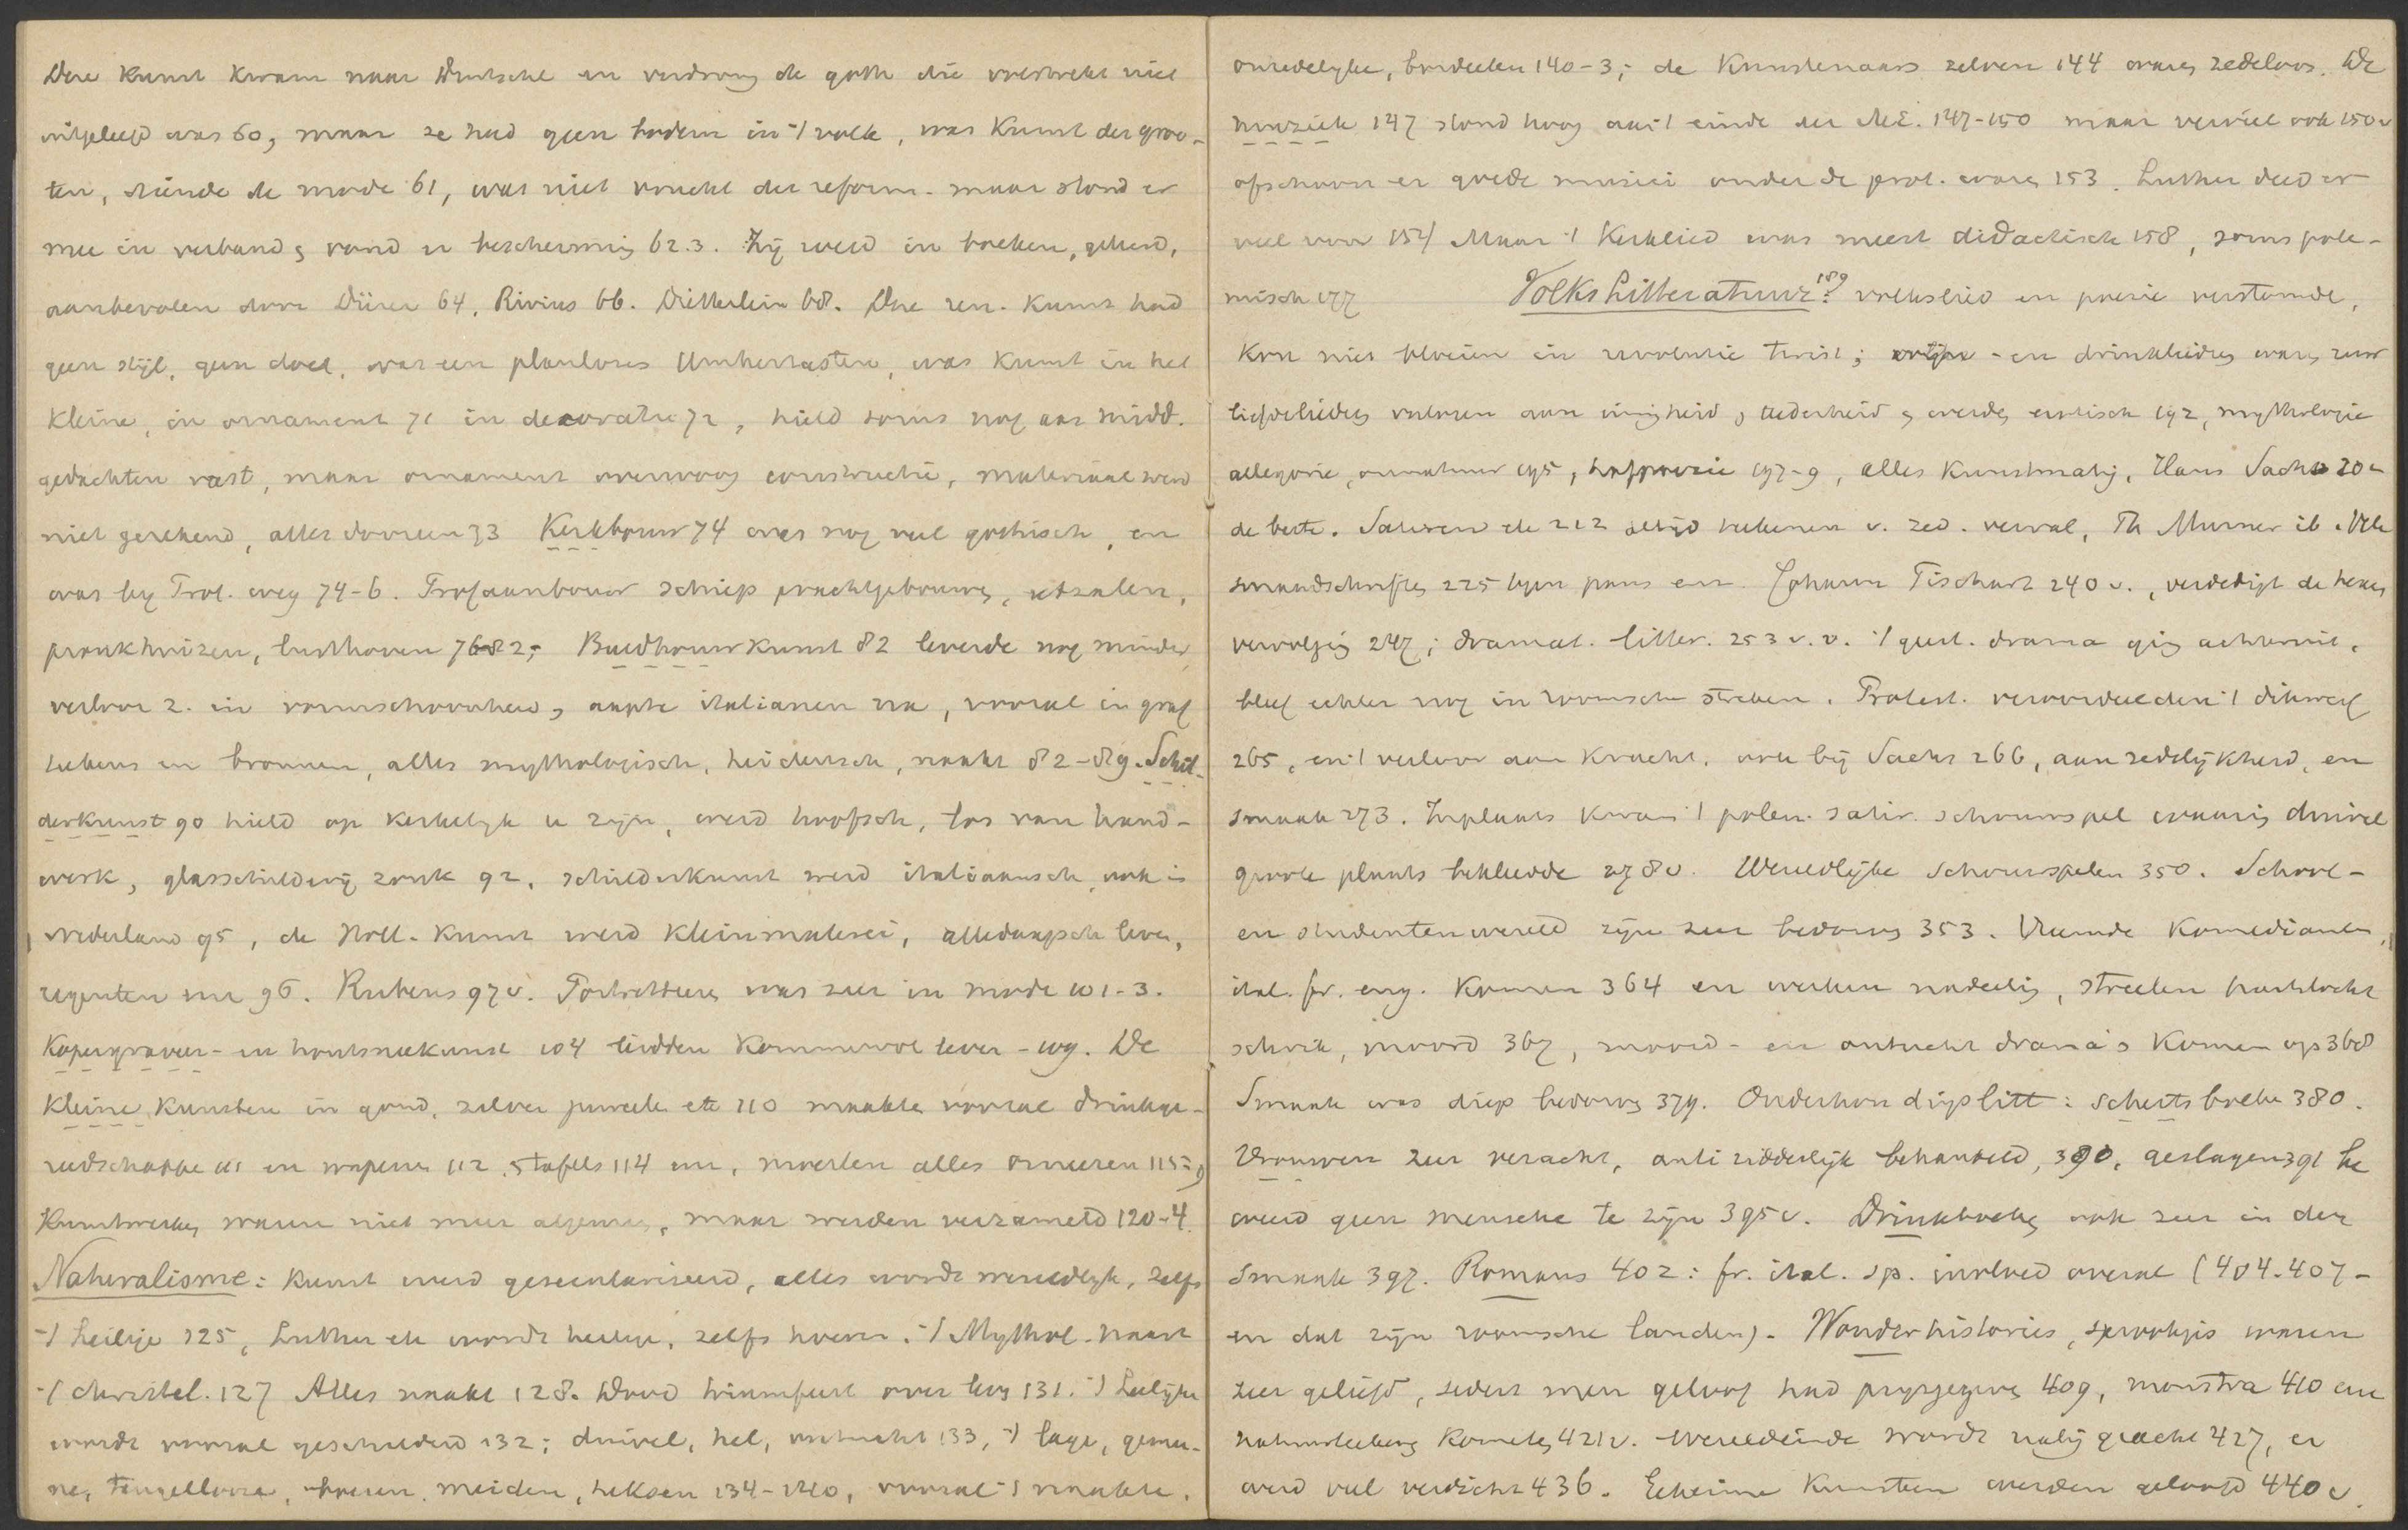 Deze kunst kwam naar Duitschl. en verdrong de goth. die volstrekt niet
uitgeleefd was 60, maar ze had geen bodem in 't volk, was kunst der groo-
ten, diende de mode 61, was niet vrucht der reform. maar stond er
mee in verband, vond er bescherming 62.3. Zij werd in boeken, geleerd,
aanbevolen door Dürer 64, Rivius 66. Dietterlein 68. Die ren. kunst had
geen stijl, geen doel, was een planloses Umhertasten, was kunst in het
kleine, in ornament 71 in decoratie 72, hield soms nog aan midd.
gedachten vast, maar ornament overwoog constructie, materiaal werd
niet gerekend, alles dooreen 73 Kerkbouw 74 was nog veel gothisch, en
was by Prot. weg 74-6. Profaanbouw schiep prachtgebouwen, eetzalen,
pronkhuizen, lusthoven 76-82; Beeldhouwkunst 82 leverde nog minder,
verloor z. in vormschoonheid, aapte italianen na, vooral in graf
tekens en bronnen, alles mythologisch, heidensch, naakt 82-89. Schil-
derkunst 90 hield op kerkelyk te zijn, werd hoofsch, los van hand-
werk, glasschildering zonk 92, schilderkunst werd italiaansch, ook in
Nederland 95, de Holl. kunst werd Kleinmalerei, alledaagsch leven,
regenten enz 96. Rubens 97 v. Portretteeren was zeer in mode 101-3.
Kopergraveer- en houtsneekunst 104 leidden kommervol leven -109. De
kleine kunsten in goud, zilver juweelen etc 110 maakten vooral drinkge-
reedschappen 111 en wapenen 112, tafels 114 enz, moesten alles orneeren 115;
Kunstwerken waren niet meer algemeen, maar werden verzameld 120-4.
Naturalisme: Kunst werd geseculariseerd, alles wordt wereldlyk, zelfs
't heilige 125, Luther etc wordt heilige, zelfs hoeren. 't Mythol. naast
't christel. 127 Alles naakt 128. Dood triumfeert over leven 131. 't Leelijke
wordt vooral geschilderd 132; duivel, hel, ontucht 133, 't lage, gemee-
ne, teugellooze, boeren, meiden, heksen 134-140, vooral 't naakte,
onzedelyke, bordeelen 140-3; de Kunstenaars zelven 144 waren zedeloos. De
muziek 147 stond hoog aan 't einde der ME. 147-150 maar verviel ook 150 v
ofschoon er goede musici onder de prot. waren 153. Luther deed er
veel voor 154 Maar 't Kerklied was meest didactisch 158, soms pole-
misch 177 Volkslitteratuur 189: volkslied en poezie verstomde,
kon niet bloeien in revolutie twist; - en drinkliedren waren zeer
liefdeliedren verloren aan innigheid, teederheid, werden erotisch 192, mythologie
allegorie, onnatuur 195, hofpoezie 197-9, alles kunstmatig, Hans Sachs 202
de beste. Satiren etc 212 altijd teekenen v. zed. verval, Th Murner ib. Vele
smaadschriften 225 tegen paus enz. Johann Fischart 240 v., verdedigt de heksen
vervolging 247; dramat. litter. 253 v.v. 't geest. drama ging achteruit,
bleef echter nog in roomsche streken. Protest. veroordeelden 't dikwerf
265, en 't verloor aan kracht, ook bij Sachs 266, aan zedelijkheid, en
smaak 273. Inplaats kwam 't polem. satir. schouwspel waarin duivel
groote plaats bekleedde 278 v. Wereldlijke schouwspelen 350. School-
en studentenwereld zijn zeer bedorven 353. Vreemde Komedianten,
ital. fr. eng. komen 364 en werken nadeelig, streelen
schrik, moord 367, moord- en ontucht drama's komen op 368
Smaak was diep bedorven 379. Onderhoudingslitt: schertsboeken 380.
Vrouwen zeer veracht, anti ridderlijk behandeld, 390, geslagen 391 be
weerd geen mensche te zijn 395 v. Drinkboeken ook zeer in den
smaak 397. Romans 402: fr. ital. sp. invloed overal (404-407-
en dat zijn roomsche landen). Wonderhistories, sprookjes waren
zeer geliefd, sedert men geloof had prysgegeven 409, monstra 410 enz
Kometen 421 v. Wereldeinde wordt nabij geacht 427, er
werd veel verdicht 436. Geheime Kunsten werden geloofd 440 v.